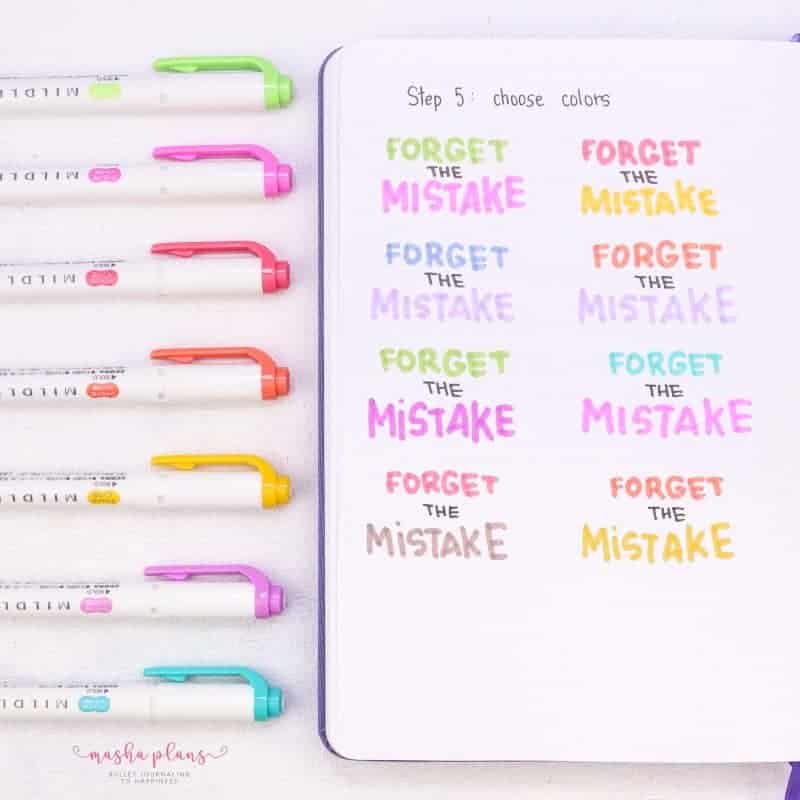 Step 5: choose colors
FORGET
THE
MISTAKE
FORGET
THE
MISTAKE
FORGET
THE
MISTAKE
FORGET
THE
MISTAKE
FORGET
THE
MiSTAKE
FORGET
THE
MISTAKE
FORGET
THE
MiSTAKE
FORGET
THE
MiSTAKE
MILDL
MILDL
MILDL
MILDL
MILDL
MILDL
MILDL
masha plans
BULLET JOURNALING
TO HAPPINESS